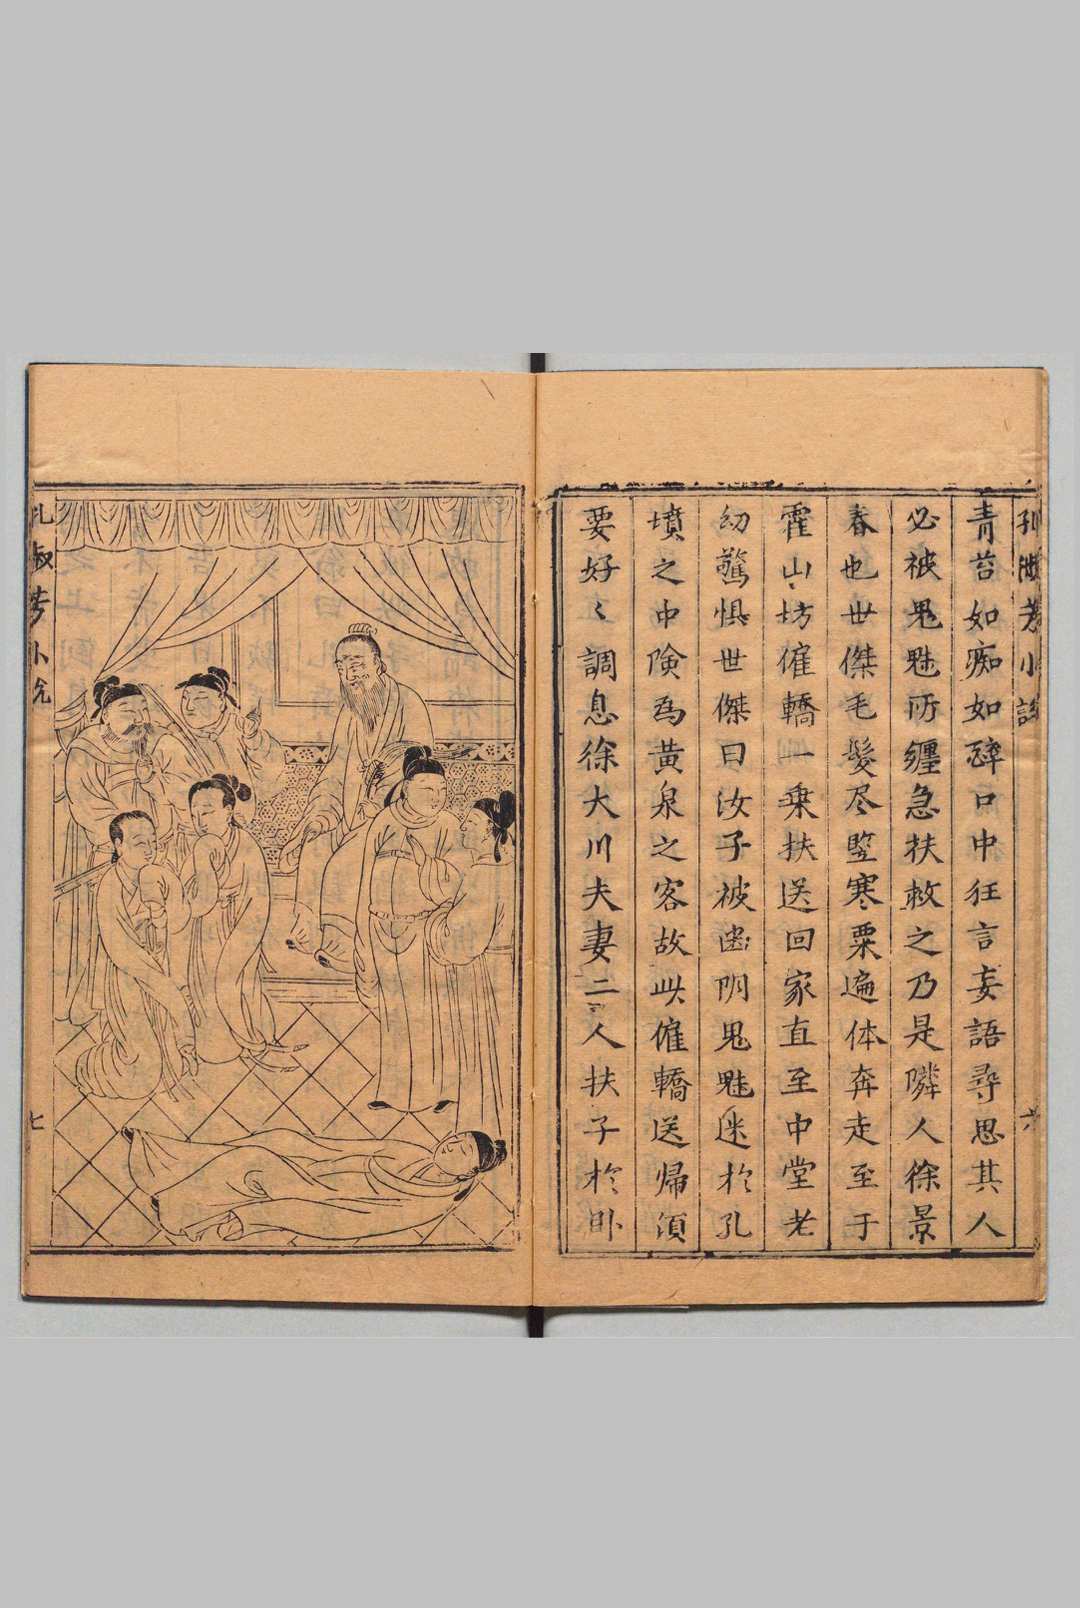 孔淑芳小說
六
青苔如痴如醉口中狂言妄語尋思其人
必被鬼魅所纏急扶救之乃是隣人徐景
春也世傑毛髮尽竪寒粟遍体奔走至于
霍山丶坊僱轎一乗扶送回家直至中堂老
幼驚惧世傑曰汝子被幽阴鬼魅迷於孔
墳之中険為黄泉之客故此僱轎送帰須
要好〻調息徐大川夫妻二人扶子於卧
孔叔芳小說
七